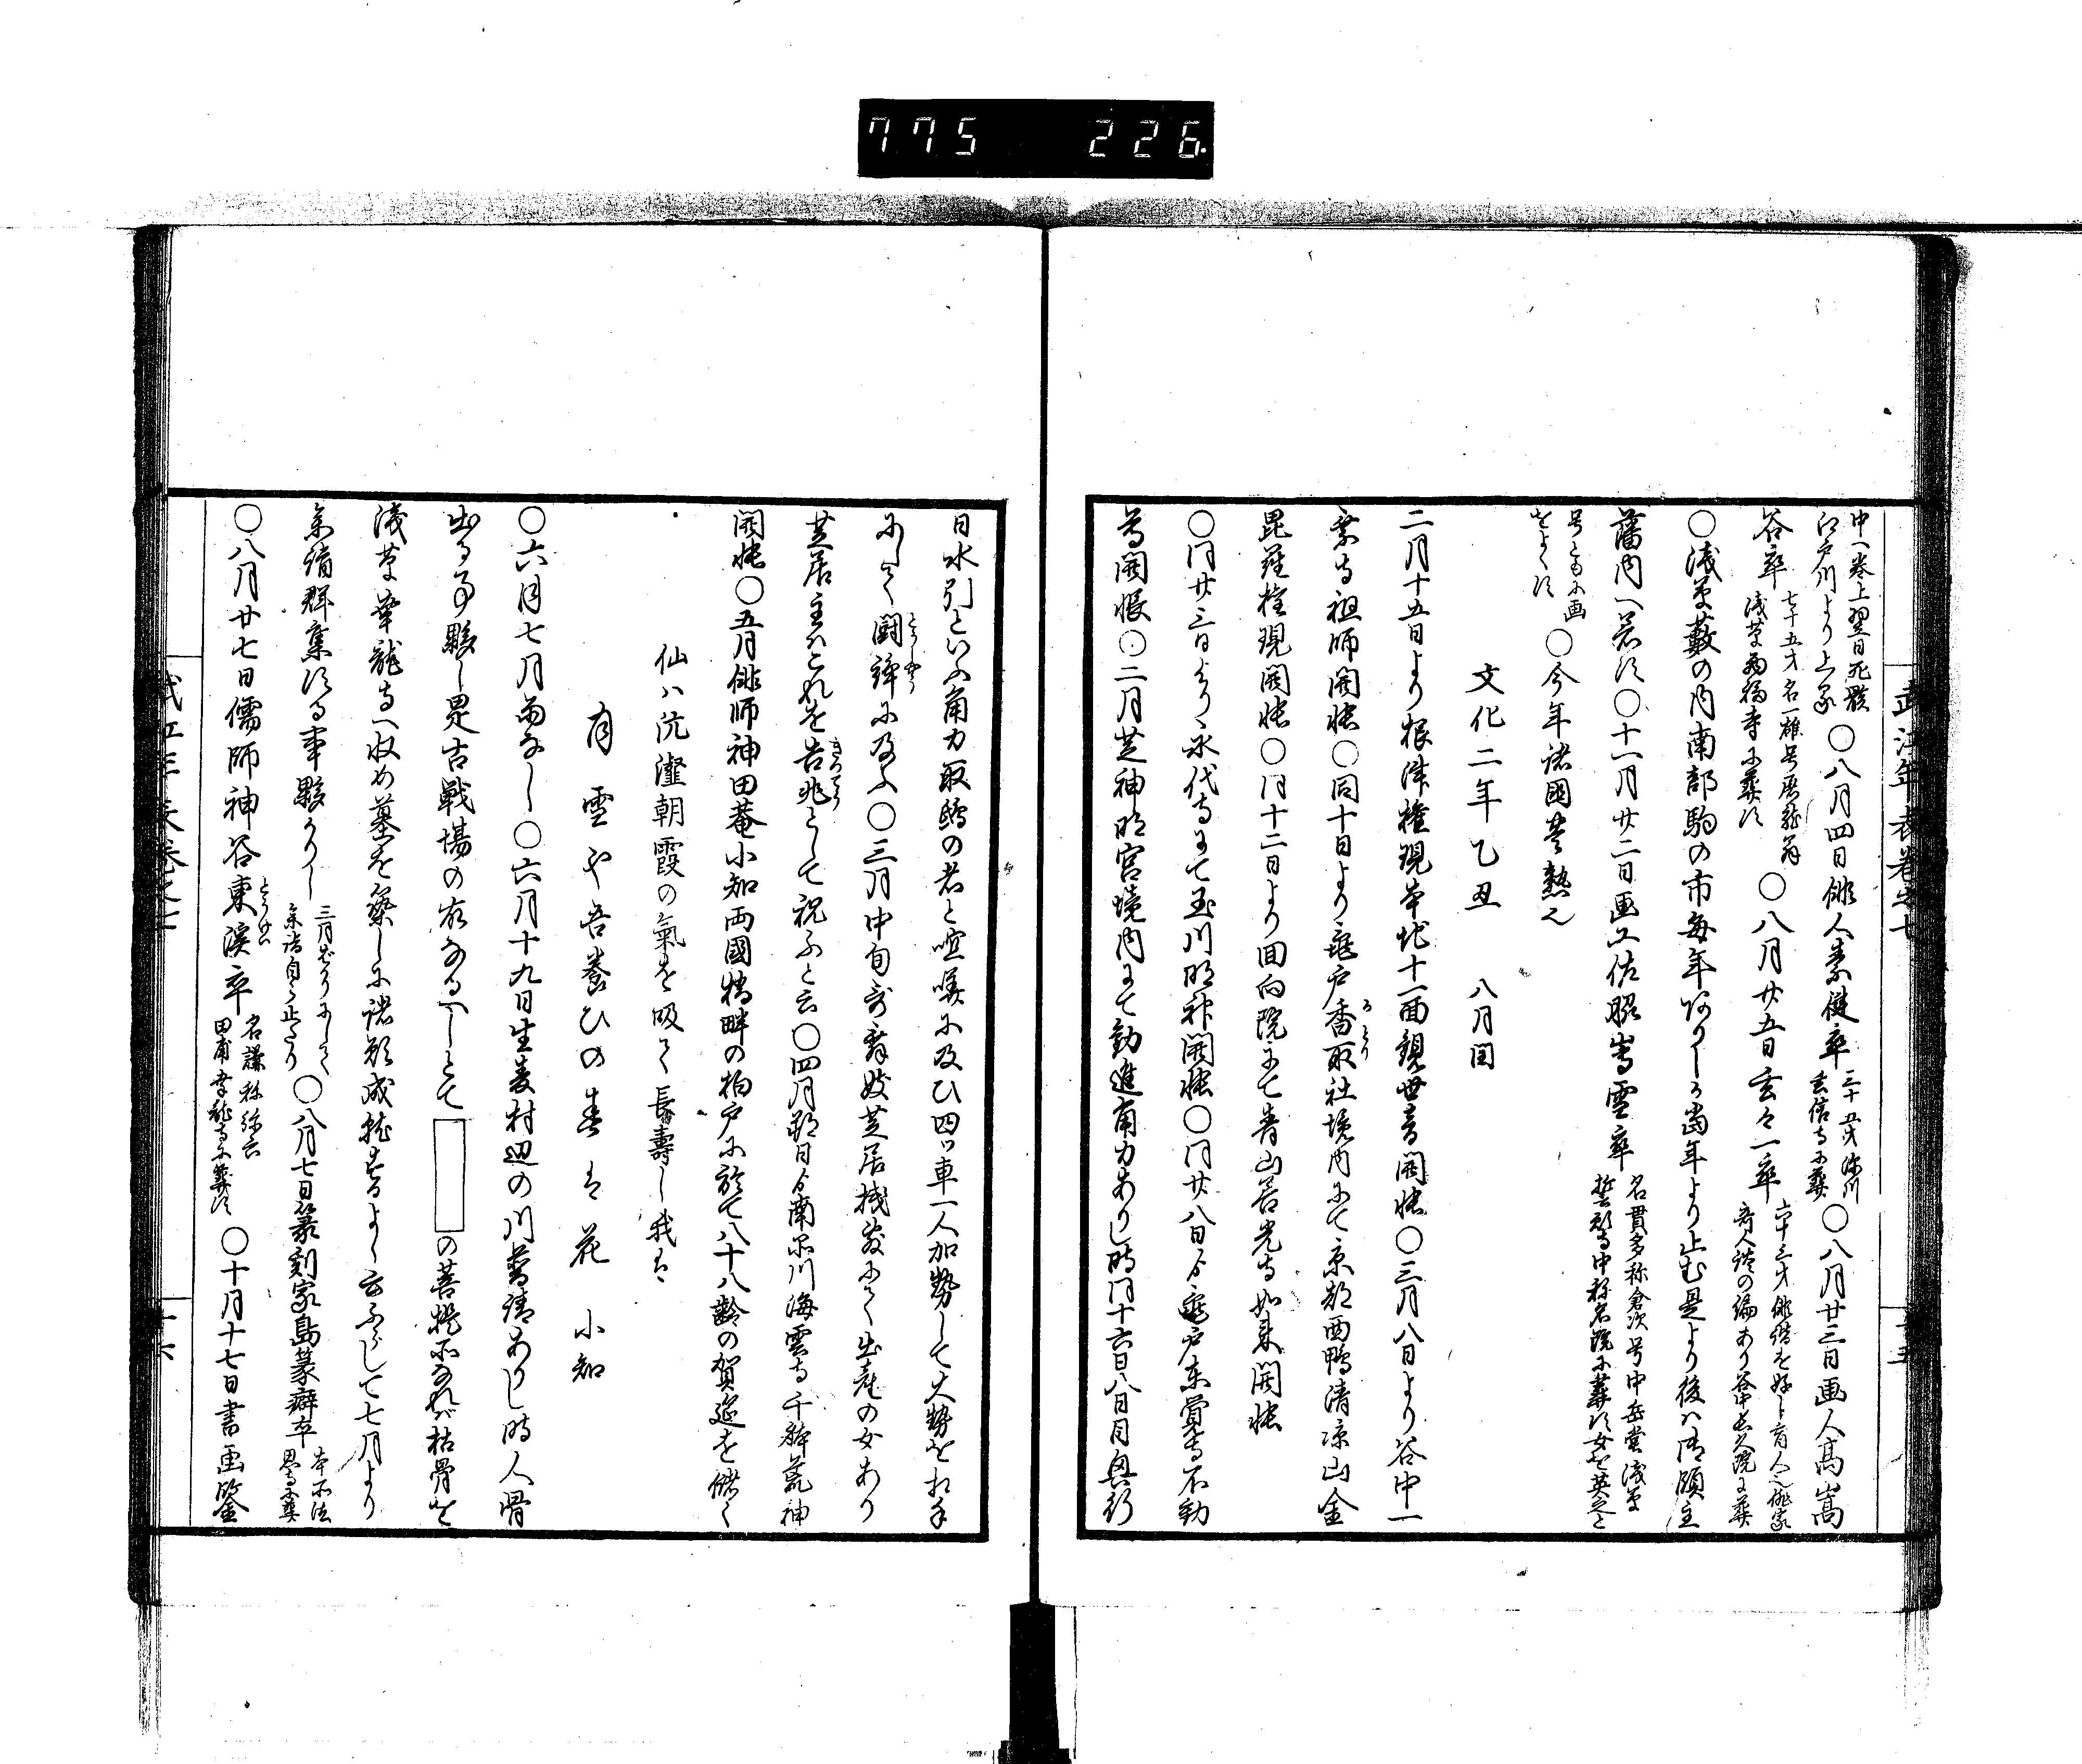 775 226
武江年表巻之七
中へ巻上翌日死骸
江戸川より上る
○八月四日俳人素健卒
三十五才深川
玄信寺に葬
○八月廿三日画人高嵩
谷卒
七十五才名一雄号屠龍翁
浅草西福寺に葬す
○八月廿五日玄々一卒
六十三才俳諧を好し盲人也俳家
奇人談の編あり谷中長久院に葬
○浅草藪の内南部駒の市毎年ありしか当年より止む是より後は馬頭主
藩内へ着す○十一月廿二日画工佐脇嵩雪卒
名貫多称倉次号中岳堂浅草
誓願寺中称名院に葬す女を英之と
号ともに画
をよくす
○今年諸国豊熟也
文化二年乙丑 八月閏
二月十五日より根津権現本地十一面観世音開帳○三月八日より谷中一
乗寺祖師開帳○同十日より亀戸香取社境内にて京都西鴨清凉山金
毘羅権現開帳○同十二日より回向院にて青山善光寺如来開帳
○同廿三日より永代寺にて玉川明神開帳○同廿八日より亀戸東覚寺不動
尊開帳○二月芝神明宮境内にて勧進角力あり し時同十六日八日目興行
日水引といふ角力取鴟の者と喧嘩に及ひ四ツ車一人加勢して大勢を相手
にして闘諍に及ふ○三月中旬歌舞妓芝居桟敷にて出産の女あり
芝居主はこれを吉兆として祝ふと云○四月朔日より南品川海雲寺千躰荒神
開帳○五月俳師神田菴小知両国橋畔の柏戸に於て八十八齢の賀莚を催く
仙ハ沆瀣朝霞の氣を吸て長壽し我は
月雪や吾養ひの春は花 小知
○六月七月雨なし○六月十九日生麦村辺の川普請ありし時人骨
出る事夥し是古戦場の故なるへしとて の菩提所なれば枯骨を
浅草幸龍寺へ收め墓を築しに諸願成就するよし云ふらして七月より
参詣群集する事夥かりし
三月ばかりにして
参詣自ら止たり
○八月七日篆刻家島篆癖卒
本所法
恩寺に葬
○八月廿七日儒師神谷東渓卒
名謙称弥六
田甫幸龍寺に葬す
○十月十七日書画鑒
武江年表巻之七
十六